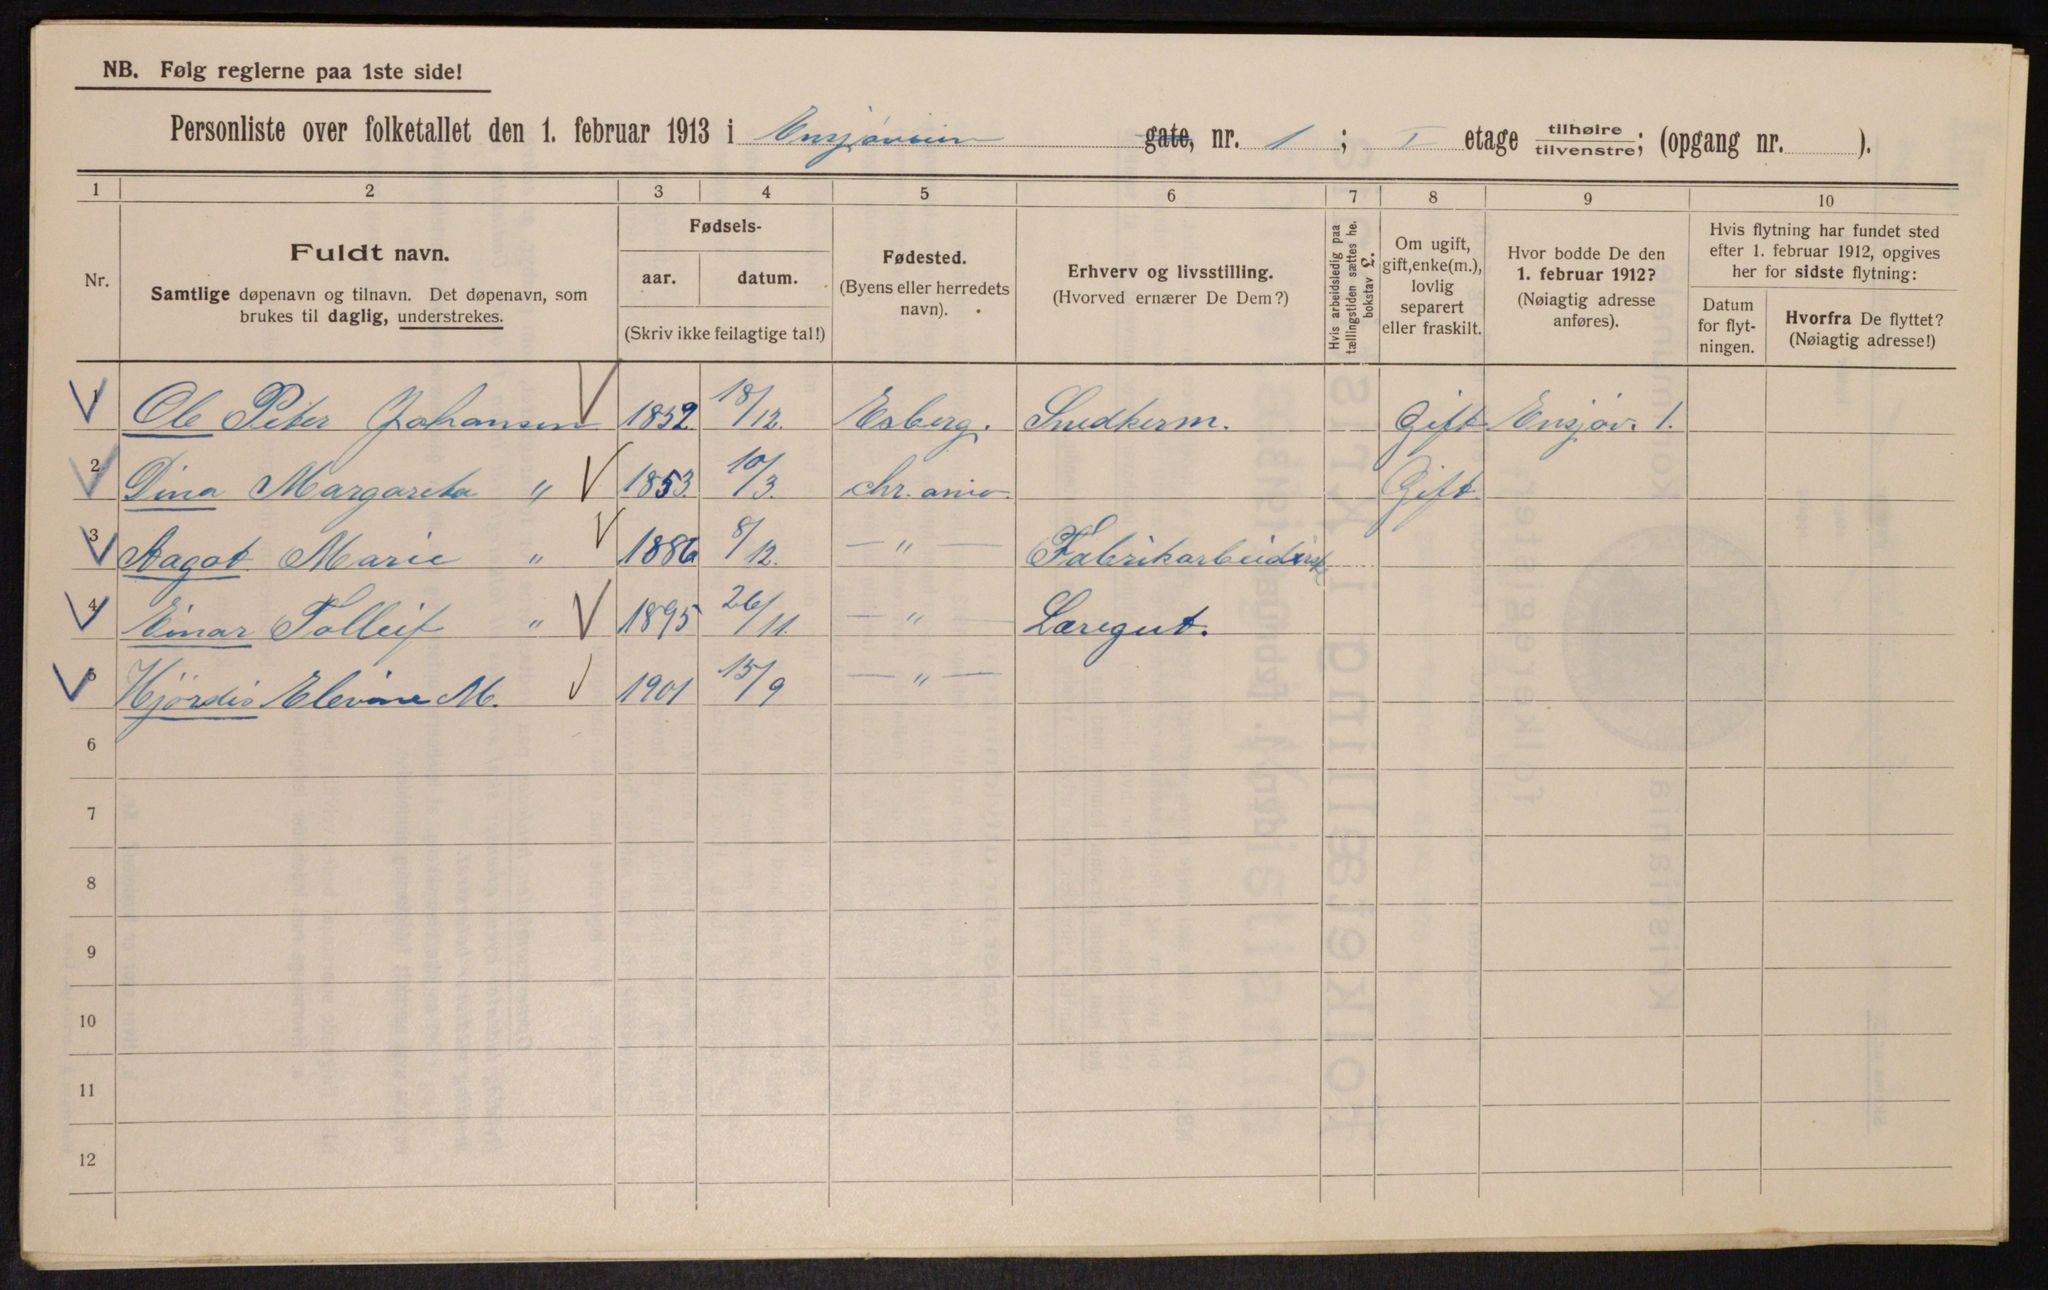 NB. Følg reglerne paa 1ste side!
Personliste over folketallet den 1. februar 1913 i Ensjøveien gate, nr. 1 ; I etage tilhøire tilvenstre; (opgang nr. ).
1 2 3 4 5 6 7 8 9 10
Nr.
Fuldt navn.
Samtlige døpenavn og tilnavn. Det døpenavn, som
brukes til daglig, understrekes.
Fødsels-
aar. datum.
(Skriv ikke feilagtige tal!)
Fødested.
(Byens eller herredets
navn).
Erhverv og livsstilling.
(Hvorved ernærer De Dem?)
Hvis arbeidsledig paa
tællingstiden sættes her
bokstav L.
Om ugift,
gift, enke(m.),
lovlig
separert
eller fraskilt.
Hvor bodde De den
1. februar 1912?
(Nøiagtig adresse
anføres).
Hvis flytning har fundet sted
efter 1. februar 1912, opgives
her for sidste flytning:
Datum
for flyt-
ningen.
Hvorfra De flyttet?
(Nøiagtig adresse!)
1 Ole Peter Johansen 1852 18/12. Esberg. Snedkerm. Gift Ensjøv. 1.
2 Dina Margareta " 1853 10/3. Chr.ania. Gift
3 Aagot Marie " 1886 8/12. — " — Fabrikarbeiderske
4 Einar Tolleif " 1895 26/11. — " — Læregut.
5 Hjørdis Elevine M. 1901 15/9 — " —
6
7
8
9
10
11
12